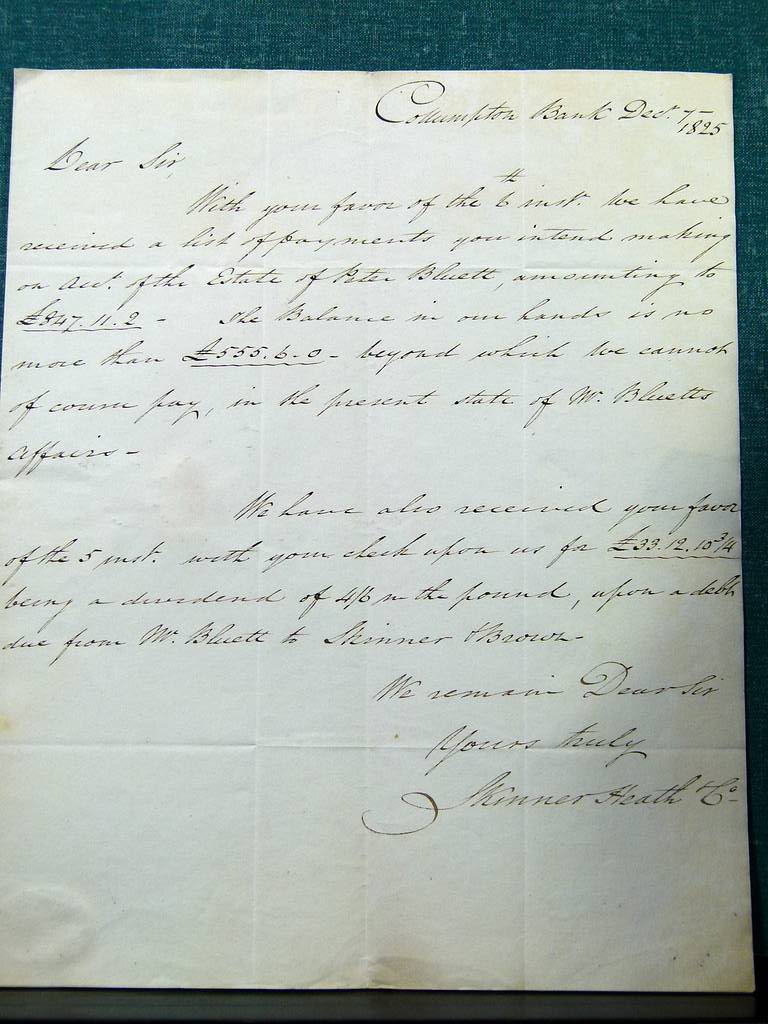 Collumpton Bank Decr. 7 - 1825
Dear Sir,
With your favor of the 6th inst. we have
received a list of payments you intend making
on acct. of the Estate of Peter Bluett, amounting to
£847.11.2 - The Balance in our hands is no
more than £555.6.0 - beyond which we cannot
of course pay, in the present state of Mr. Bluetts
affairs -
We have also received your favor
of the 5 inst. with your check upon us for £33.12.10 3/4
being a dividend of 4/6 in the pound, upon a debt
due from Mr. Bluett to Skinner & Brown -
We remain Dear Sir
Yours truly
Skinner Heath & Co -